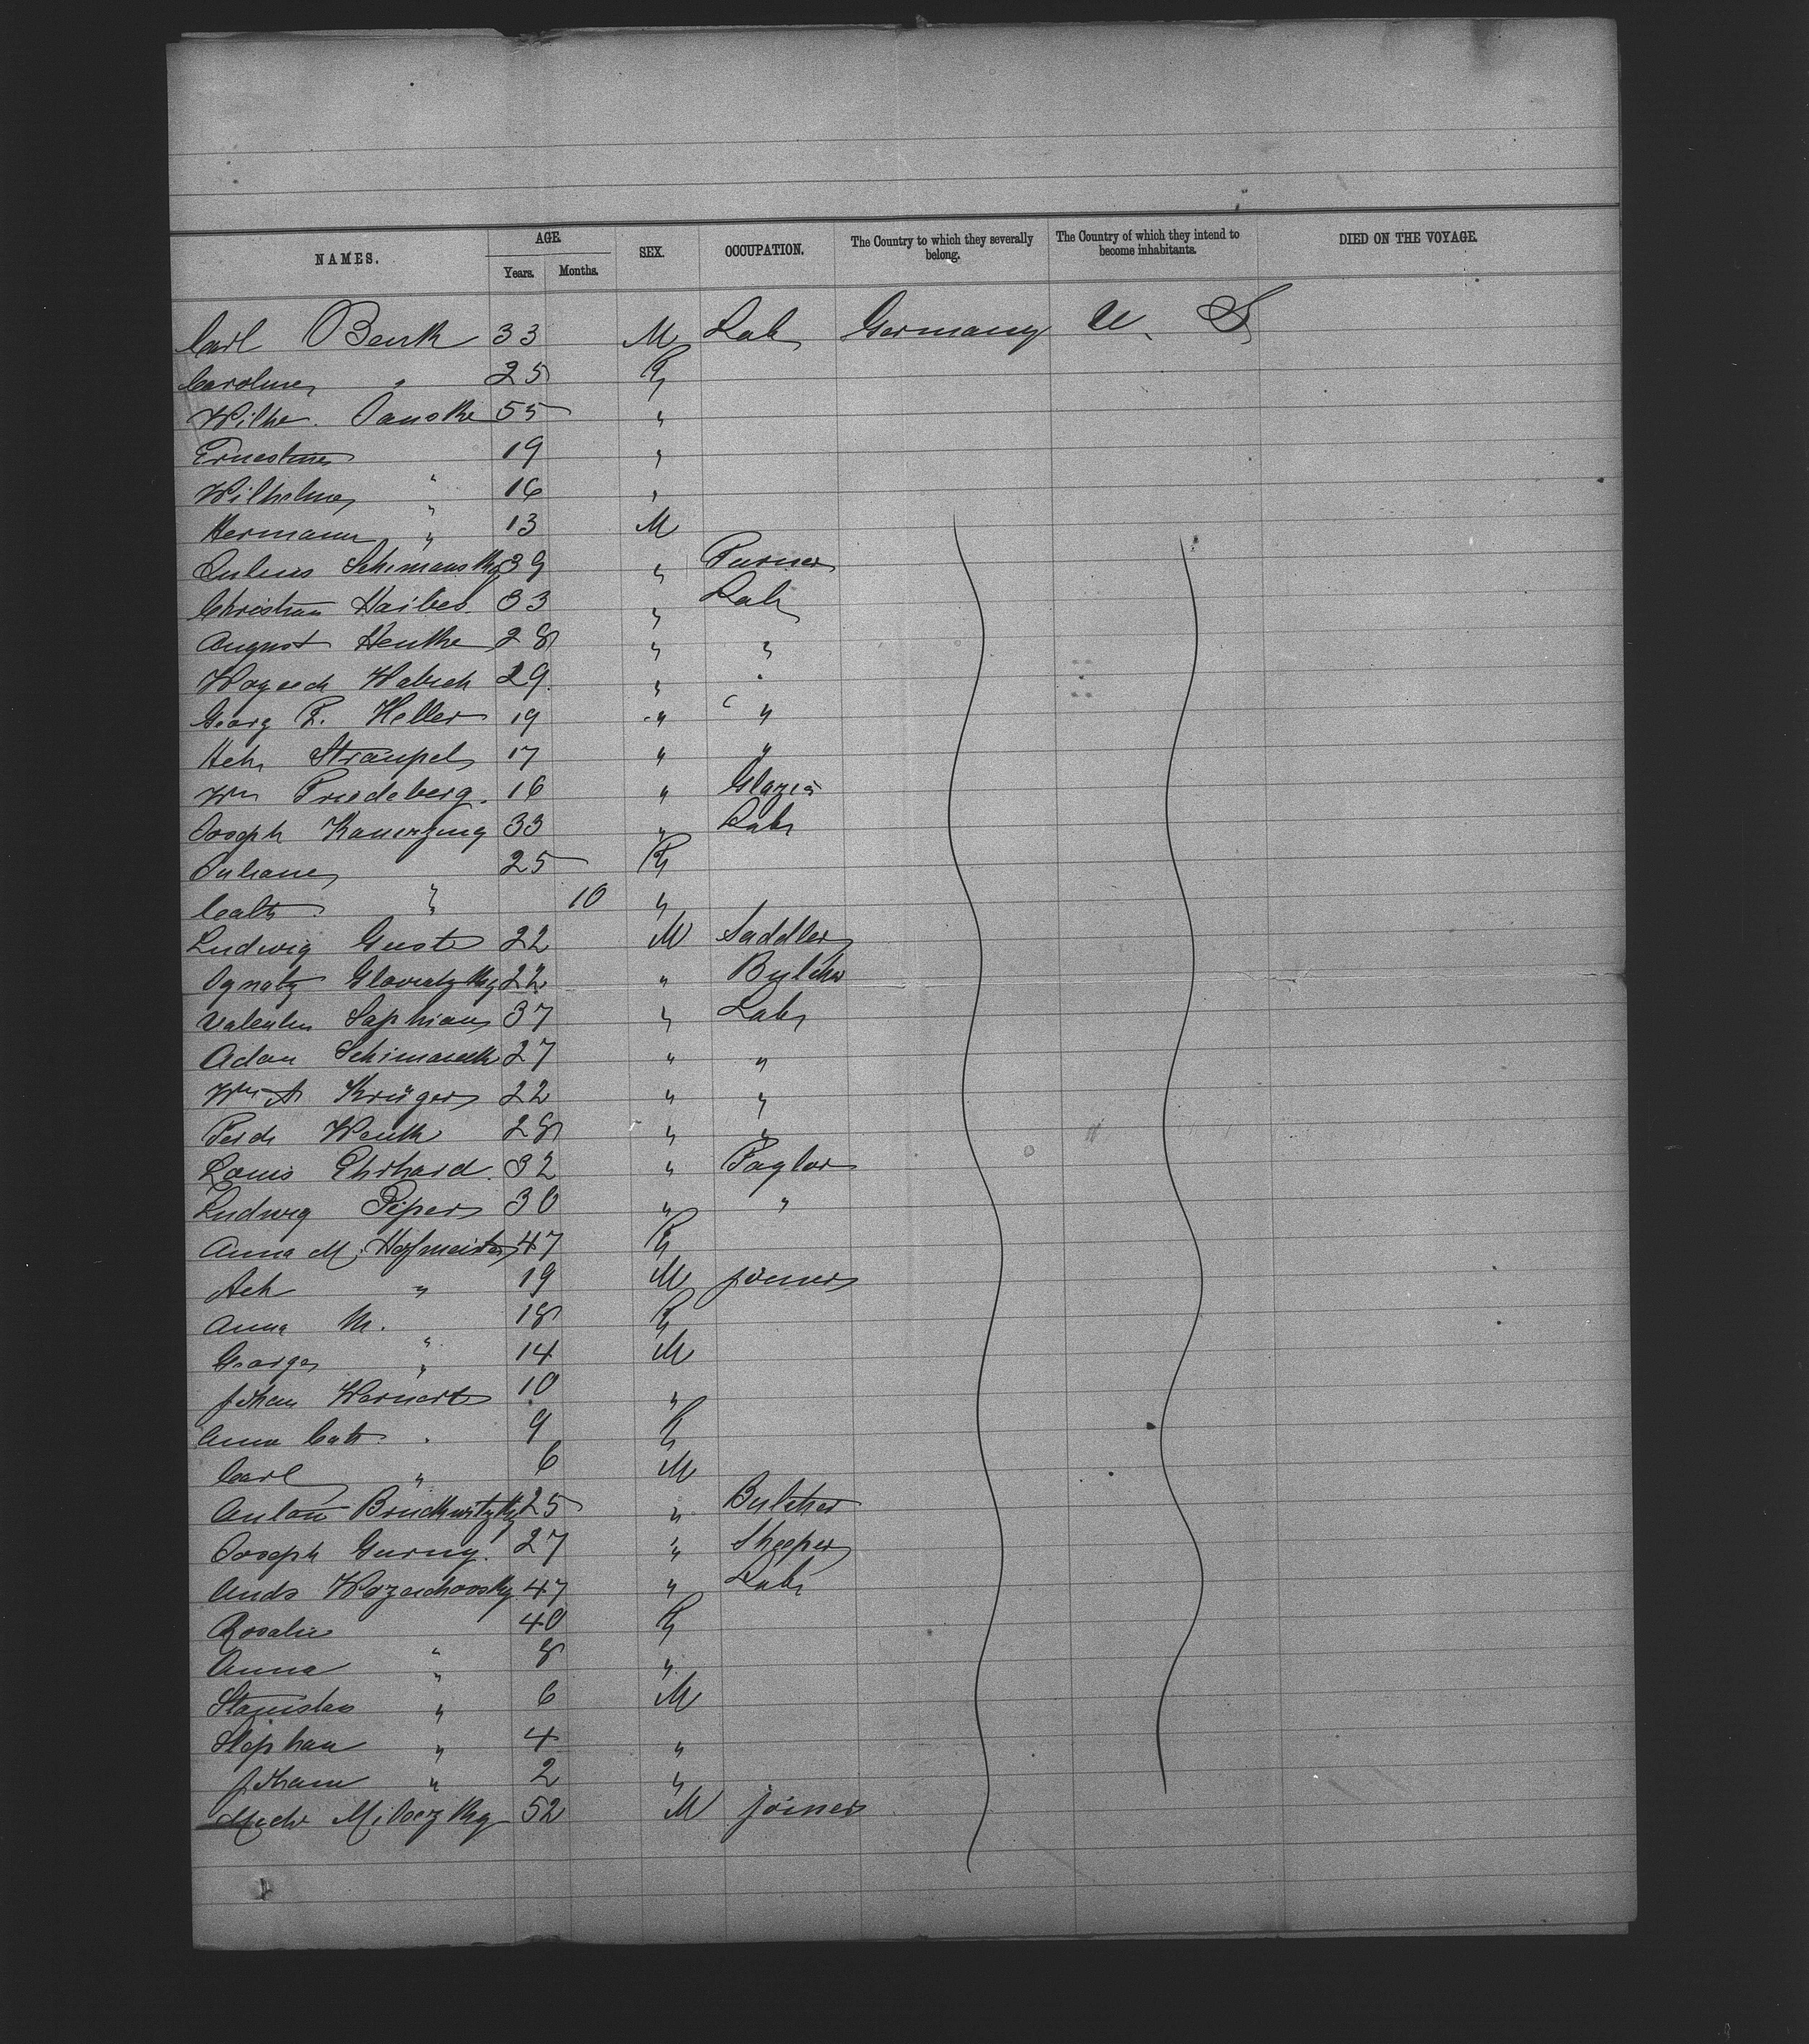 NAMES. AGE. SEX. OCCUPATION. The Country to which they severally belong. The Country of which they intend to become inhabitants. DIED ON THE VOYAGE.
Years. Months.
Carl Benk 33 M Lab Germany U. S
Caroline " 25 F
Wilhe. Janske 55 "
Ernestine 19 "
Wilhelme " 16 "
Hermann " 13 M
Julius Schimansky 39 " Turner
Christian Haibel 33 " Lab
August Henke 28 " "
Woyech Habich 29 " "
Georg P. Heller 19 " "
Hch Straupel 17 " "
Wm Friedeberg. 16 " Glazier
Joseph Kauerzung 33 " Lab
Juliane 25 F
Cath " 10 "
Ludwig Gust 22 M Saddler
Ignatz Glovatzky 22 " Butcher
Valentin Saphian 37 " Lab
Adam 27 " "
Wm A Krüger 22 " "
Ferd Wenk 28 " "
Louis Ehrhard. 32 " Taylor
Ludwig Piper 30 " "
Anna M. Hofmeister 47 F
Ach " 19 M joiner
Anna M. 18 F
George " 14 M
Johan Wernert 10 "
Anna Cath. " 9 F
Carl " 6 M
Anton 25 " Butcher
Joseph Gurny. 27 "
Ands 47 " Lab
Rosalie 40 F
Anna " 8 "
Stanislav " 6 M
Stephan " 4 "
Johann " 2 "
52 M joiner